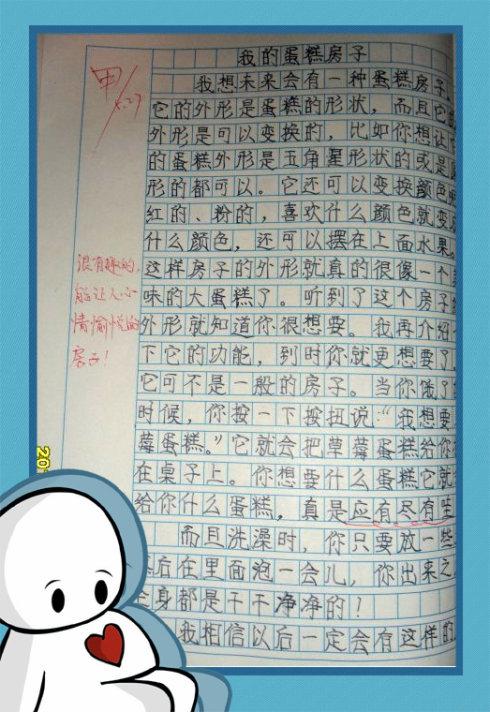 我的蛋糕房子
甲
5.27
我想未来会有一种蛋糕房子,
它的外形是蛋糕的形状，而且它
外形是可以变换的，比如你想让
的蛋糕外形是五角星形状的或是
形的都可以。它还可以变换颜色
红的、粉的，喜欢什么颜色就变
什么颜色，还可以摆在上面水果。
这样房子的外形就真的很像一个
味的大蛋糕了。听到了这个房子
外形就知道你很想要。我再介绍
下它的功能，到时你就更想要了，
它可不是一般的房子。当你饿了
时候，你按一下按扭说：“我想要
莓蛋糕。”它就会把草莓蛋糕给你
在桌子上。你想要什么蛋糕它就
给你什么蛋糕，真是应有尽有哇
而且洗澡时，你只要放一些
后在里面泡一会儿，你出来之
全身都是干干净净的！
我相信以后一定会有这样的
很有趣的，
能让人心
情愉悦的
房子！
20